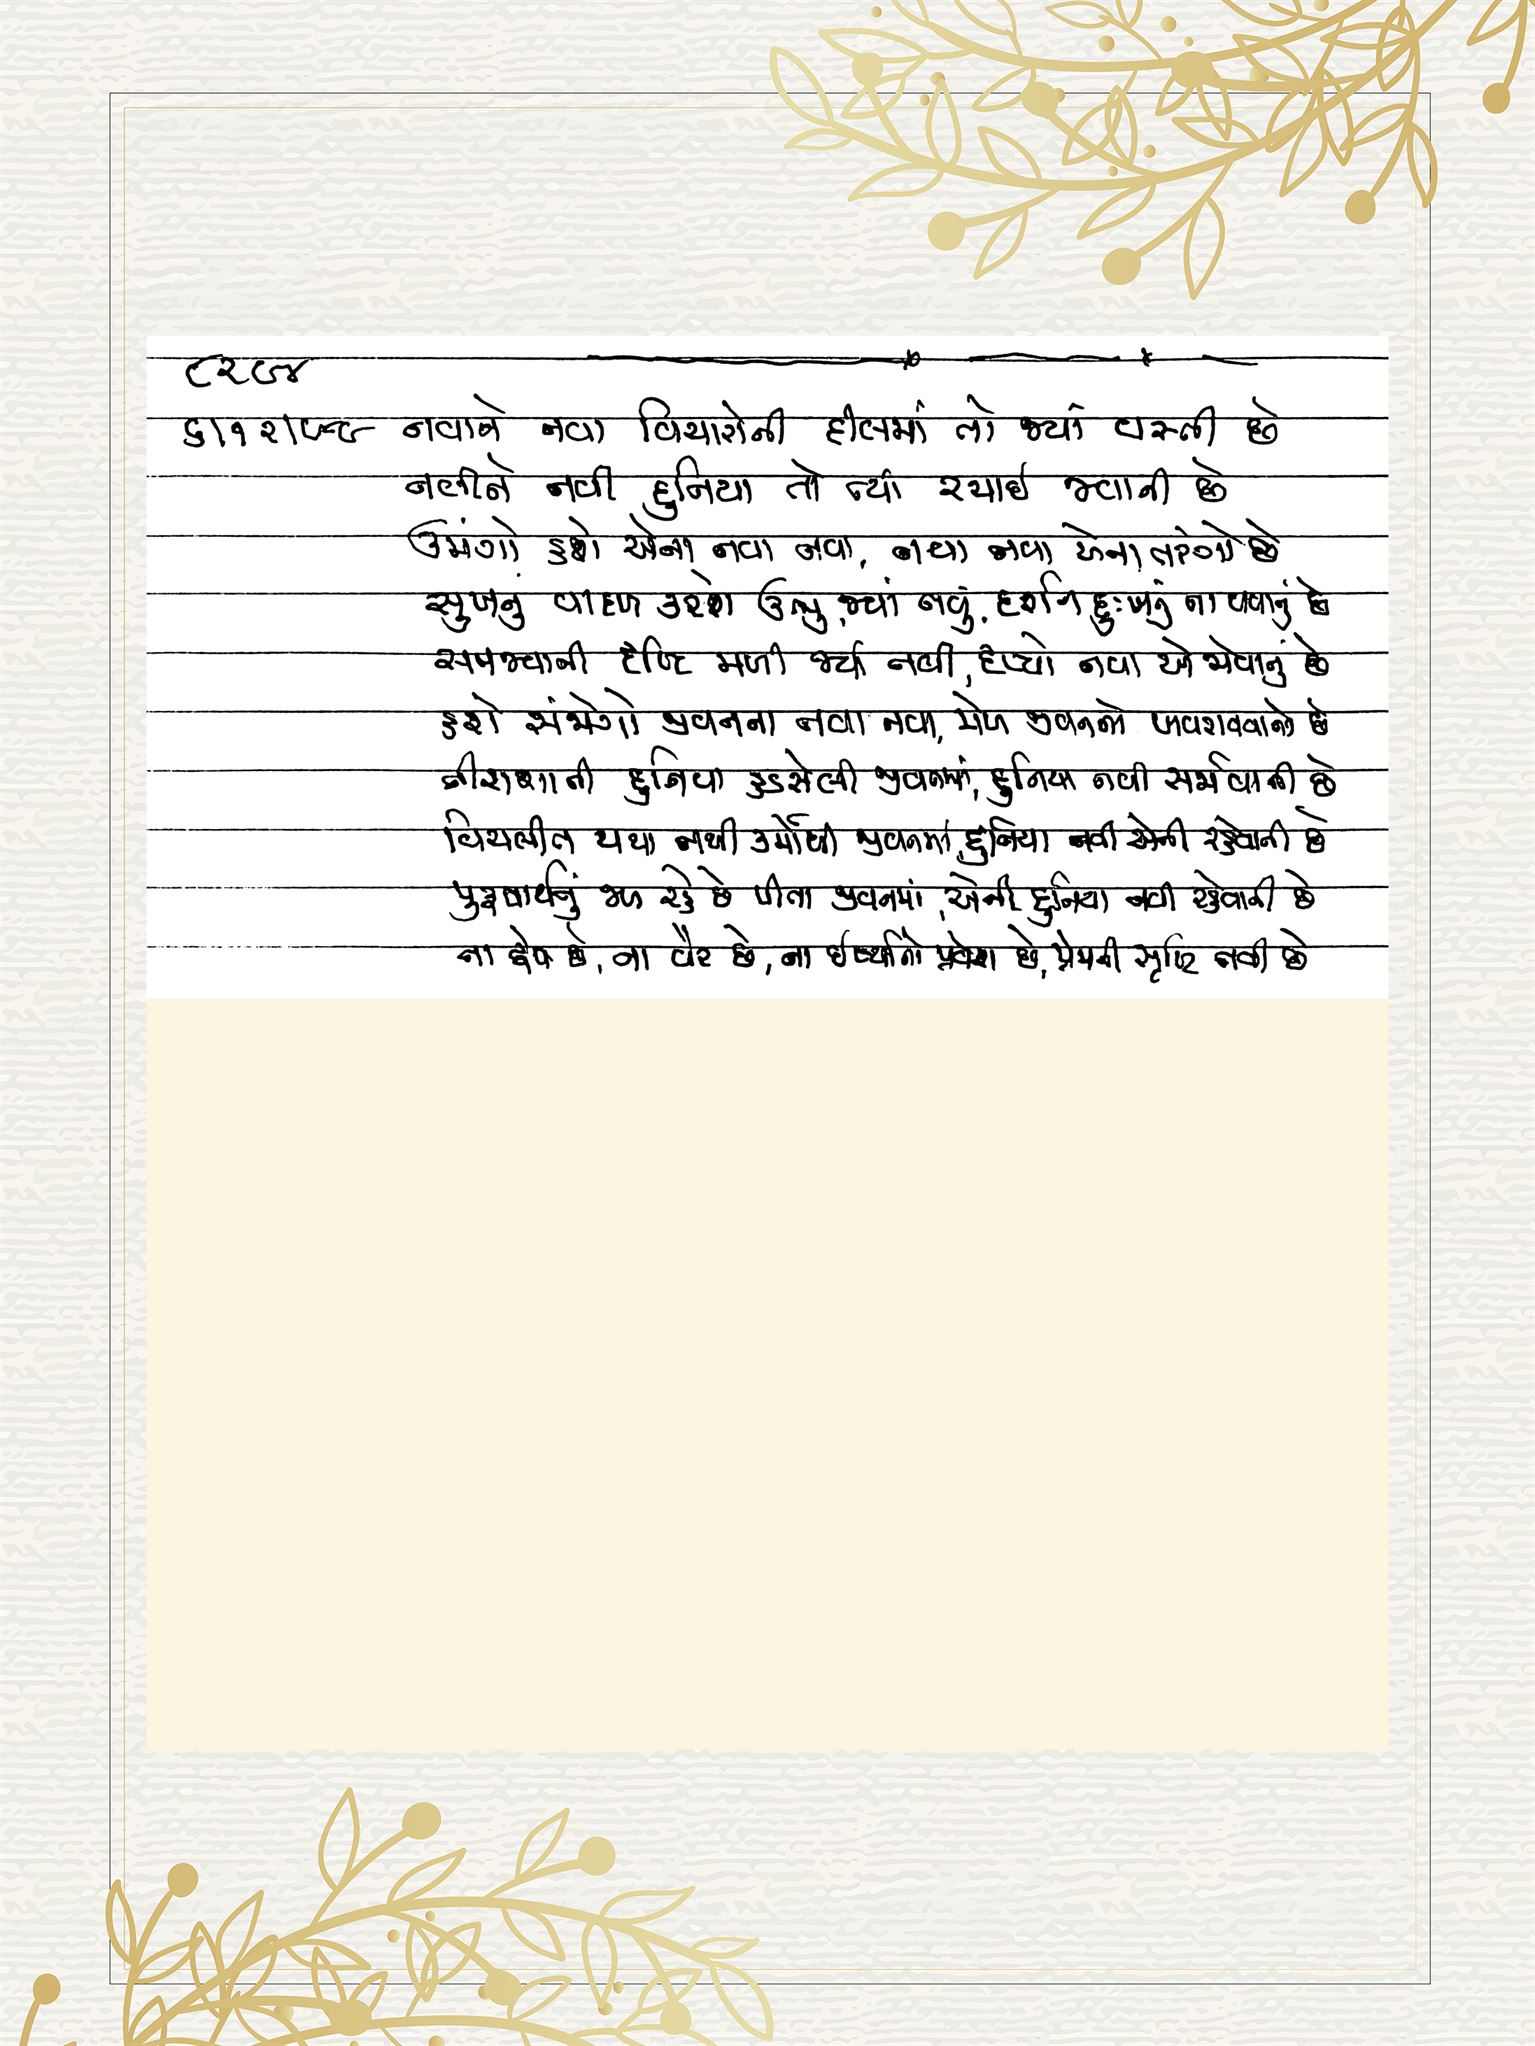 ૮૨૭૪
નવાને નવા વિચારોની દીલમાં તો જ્યાં વસ્તી છે
નવીને નવી દુનિયા તો ત્યાં રચાઇ જવાની છે
ઉમંગો હશે એના નવા નવા, નવા નવા એના તરંગો છે
સુખનું વાદળ કરશે ઉભુ જ્યાં નવું, દર્શન દુઃખનું ના થવાનું છે
સમજવાની દૃષ્ટિ મળી જ્યાં નવી, દૃશ્યો નવા એ જોવાનું છે
હશે સંજોગો જીવનના નવા નવા, મેળ જીવનનો
નીરાશાની દુનિયા હડસેલી જીવનમાં, દુનિયા નવી સર્જાવાની છે
વિચલીત થયા નથી કર્મોથી જીવનમાં, દુનિયા નવી એની રહેવાની છે
પુરૂષાર્થનું જળ રહે છે પીતા જીવનમાં, એની દુનિયા નવી રહેવાની છે
ના દ્વેષ છે, ના વૈર છે, ના ઈર્ષ્યાનો પ્રવેશ છે, પ્રેમની સૃષ્ટિ નવી છે